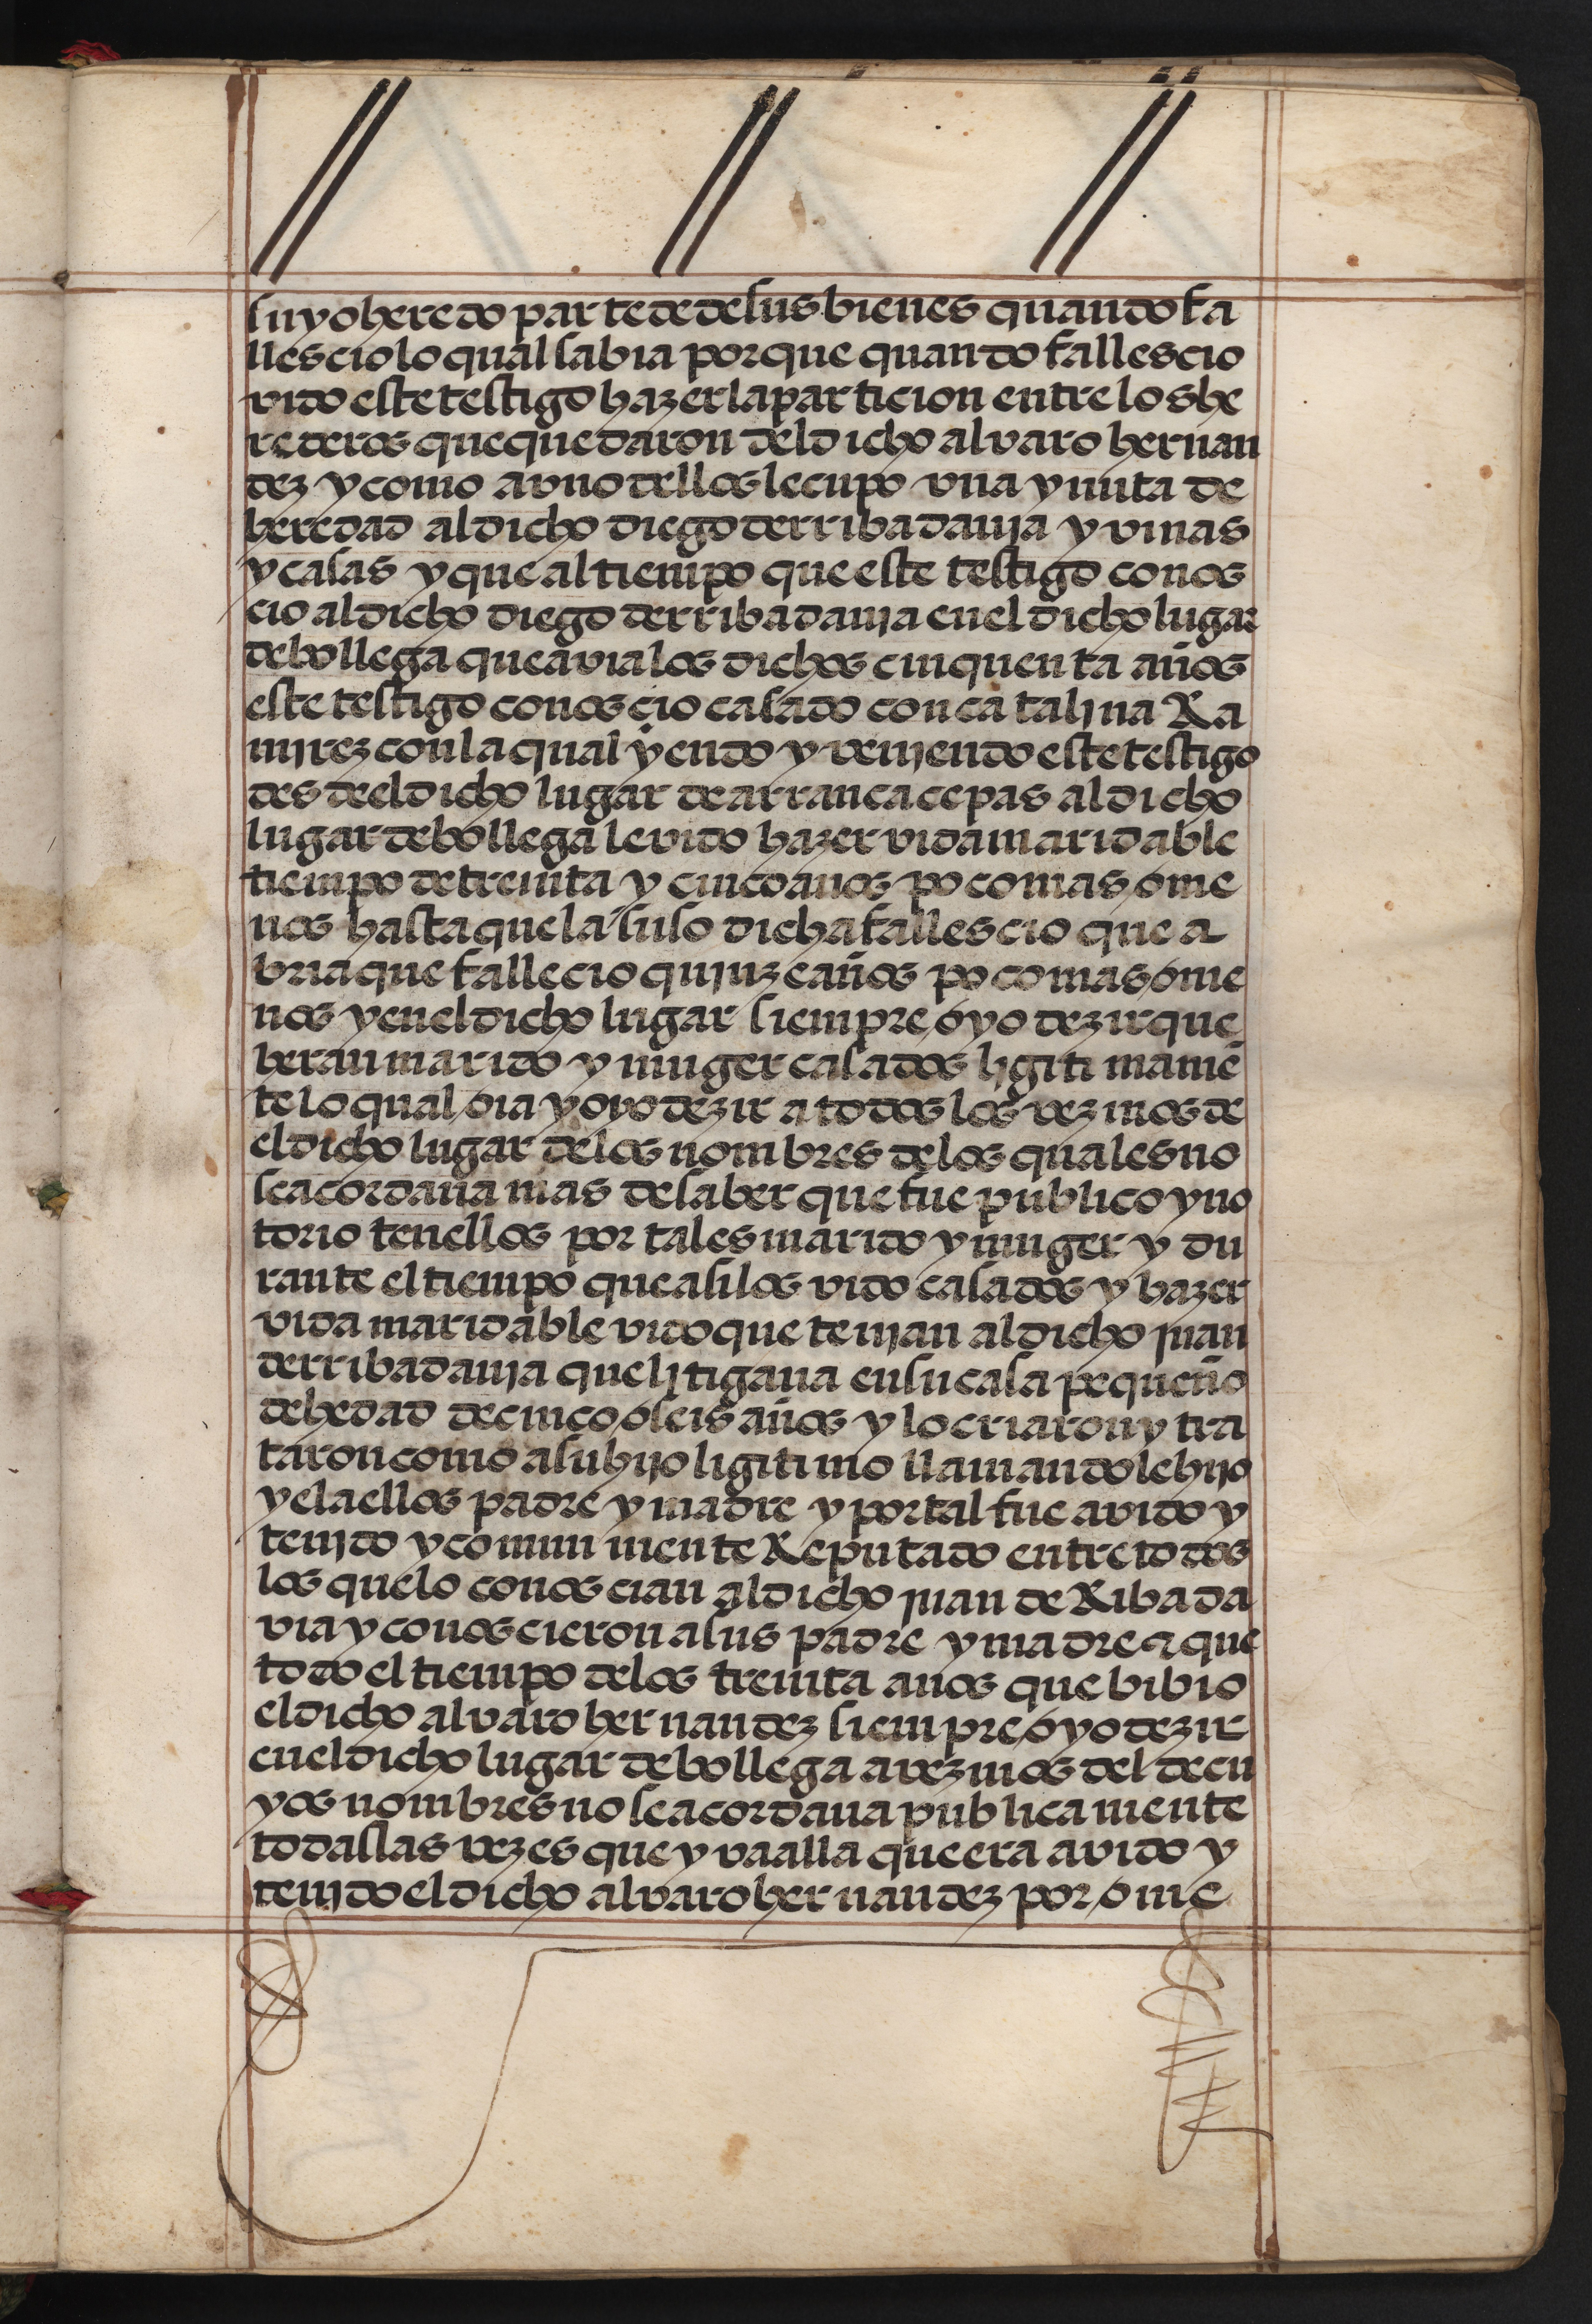 suyo heredo parte de de sus bienes quando fa
llescio lo qual sabia porque quando fallescio
vido este testigo hazer la particion entre los he
rederos que quedaron del dicho alvaro hernan
dez y como a uno dellos le cupo una yunta de
heredad al dicho diego derribadavia y vinas
y casas y que al tiempo que este testigo conos
cio al dicho diego derribadavia en el dicho lugar
de bollega que avia los dichos cinquenta años
este testigo conoscio casado con catalina Ra
mirez con la qual yendo y veniendo este testigo
desde el dicho lugar de arrancacepas al dicho
lugar de bollega le vido hazer vida maridable
tiempo de treinta y cinco anos poco mas o me
nos hasta que la suso dicha fallescio que a
bria que fallecio quinze años poco mas o me
nos y en el dicho lugar siempre oyo dezir que
heran marido y muger casados ligitimamē
te lo qual oia y oyo dezir a todos los vezinos de
el dicho lugar de los nombres de los quales no
se acordava mas de saber que fue publico y no
torio tenellos por tales marido y muger y du
rante el tiempo que asi los vido casados y hazer
vida maridable vido que tenian al dicho juan
derribadavia que litigava en su casa pequeño
de hedad de cinco o seis años y lo criaron y tra
taron como a su hijo ligitimo llamandole hijo
y el a ellos padre y madre y por tal fue avido y
tenido y comunmente Reputado entre todos
los que lo conoscian al dicho juan de Ribada
via y conoscieron a sus padre y madre & que
todo el tiempo de los treinta anos que bibio
el dicho alvaro hernandez siempre oyo dezir
en el dicho lugar de bollega a vezinos del de cu
yos nombres no se acordava publicamente
todas las vezes que yva alla que era avido y
tenido el dicho alvaro hernandez por ome